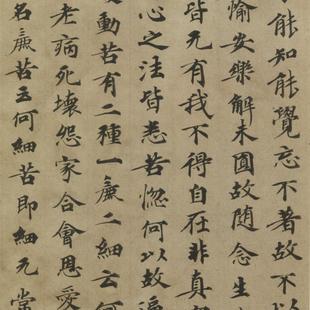 能知能覺忘不著故不以
愉安樂解未圓故随念生
皆无有我不得自在非真
心之法皆悉苦惚何以故
動苦有二種一麁二細云何
老病死壞怨家合會恩愛
名麁苦云何細苦即細无常